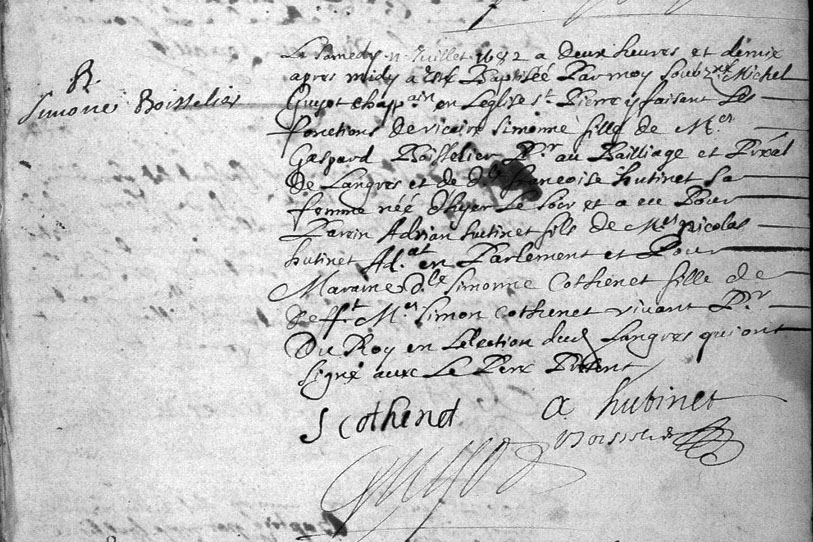 B.
Simone Boisselier
Le Samedy 11 Juillet 1682 a Deux heures et demie
apres midy a esté Baptisée Par moy soubz.né Michel
Guyot chap.ain en Leglise st. Pierre y faisant Les
fonctions de vicaire Simonne fille de M.er
Gaspard Boisselier P.r au Bailliage et P.real
De Langres et de d.lle francoise hutinet sa
femme née d'hyer Le soir et a eu Pour
Parin Adrian hutinet fils de M.er Nicolas
hutinet Ad.at en Parlement et Pour
Maraine d.lle Simonne Cothenet fille de
Def.t M.er Simon Cothenet vivant P.r
Du Roy en Lelection dud Langres qui ont
signé avec Le Pere Present
S cothenet a hutinet
Boisselier
Guyot